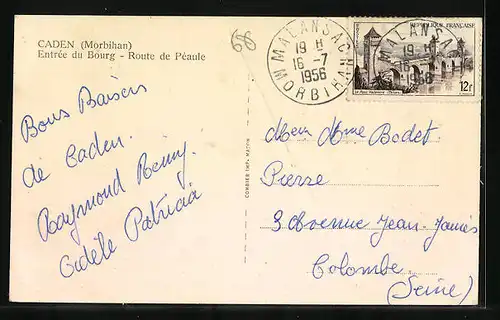 CADEN (Morbihan)
Entrée du Bourg - Route de Péaule
MALANSAC
19 H
16 -7
1956
MORBIHAN
MALANSA
19 H
1956
RÉPUBLIQUE FRANÇAISE
12F
Bons Baisers
de Caden.
Raymond Rémy.
Adèle Patricia
COMBIER IMP. MACON
Mr Mme Bodet
Pierre
3 Avenue Jean-Jaurès
Colombe
(Seine)